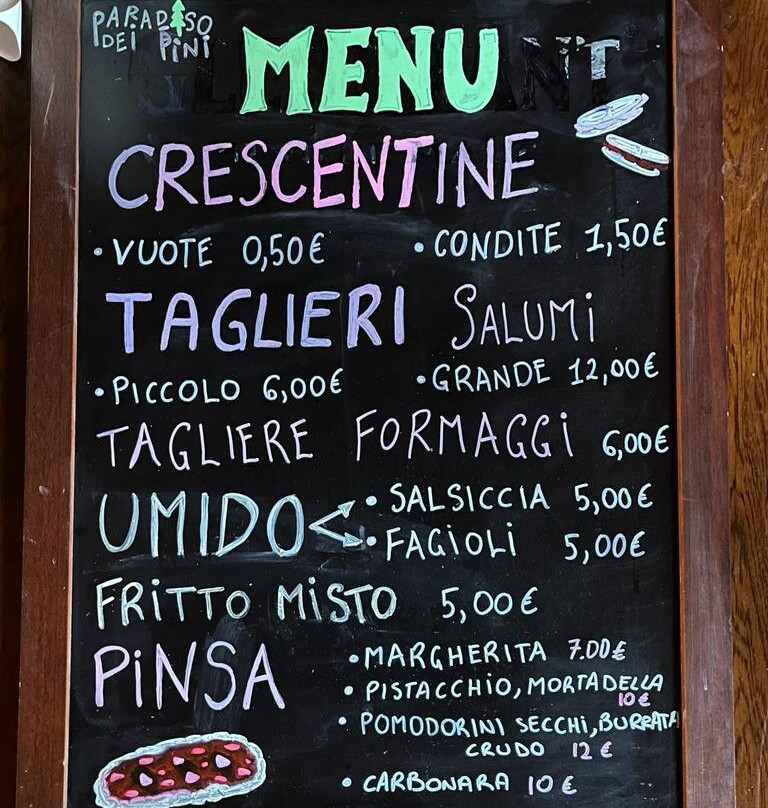 PARADISO
DEI PINI
MENU
CRESCENTINE
• VUOTE 0,50€ • CONDITE 1,50€
TAGLIERI SALUMI
• PICCOLO 6,00€ • GRANDE 12,00€
TAGLIERE FORMAGGI 6,00€
UMIDO < • SALSICCIA 5,00€
• FAGIOLI 5,00€
FRITTO MISTO 5,00€
PINSA • MARGHERITA 7.00€
• PISTACCHIO, MORTADELLA
10€
• POMODORINI SECCHI, BURRATA
CRUDO 12€
• CARBONARA 10€